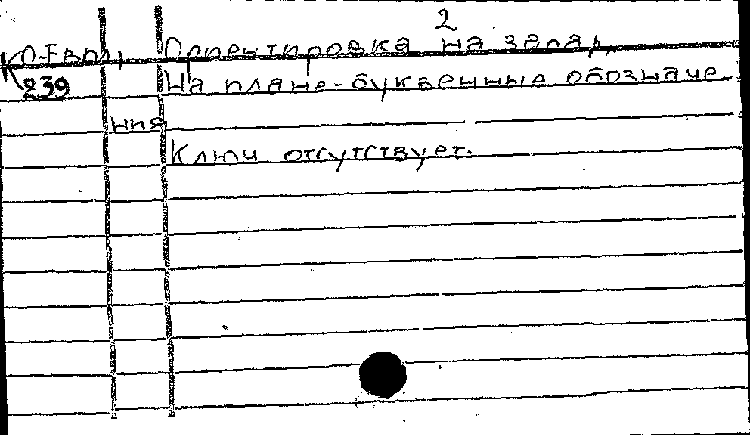 2
К О-Европ, Ориентировка на запад.
239 На плане-буквенные обозначе-
ния
Ключ отсутствует.